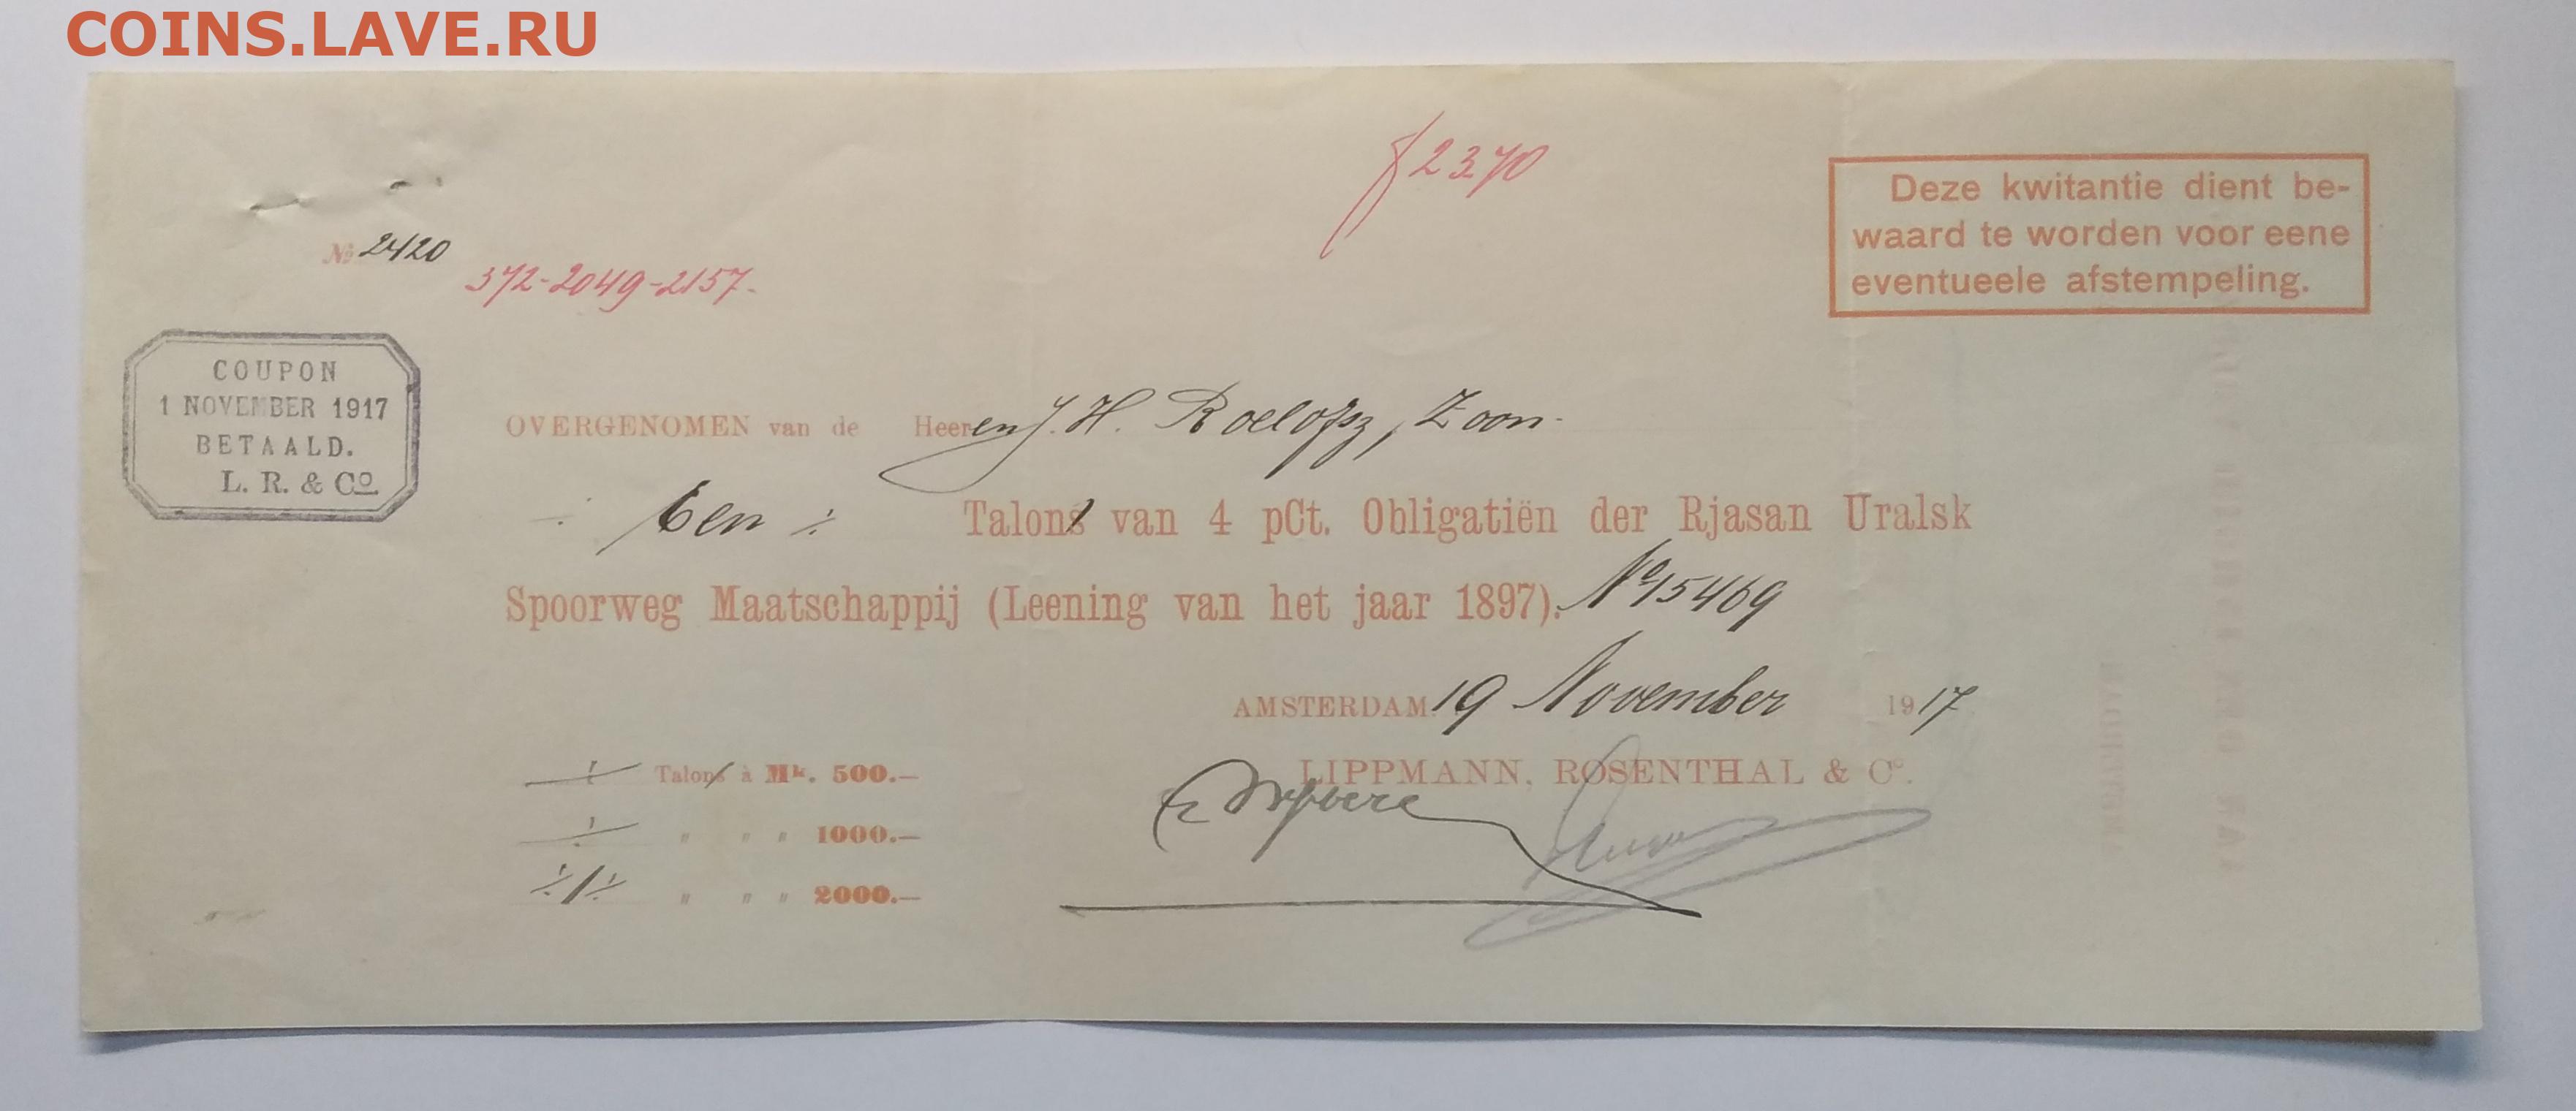 COINS.LAVE.RU
f 2370
Deze kwitantie dient be-
waard te worden voor eene
eventueele afstempeling.
No 2420
372-2049-2157.
COUPON
1 NOVEMBER 1917
BETAALD.
L. R. & Co.
OVERGENOMEN van de Heeren J. H. Roelofsz, Zoon.
Een Talons van 4 pCt. Obligatiën der Rjasan Uralsk
Spoorweg Maatschappij (Leening van het jaar 1897). No 15469
AMSTERDAM 19 November 1917
LIPPMANN, ROSENTHAL & Co.
Talons à Mk. 500.—
" " " 1000.—
1 " " " 2000.—